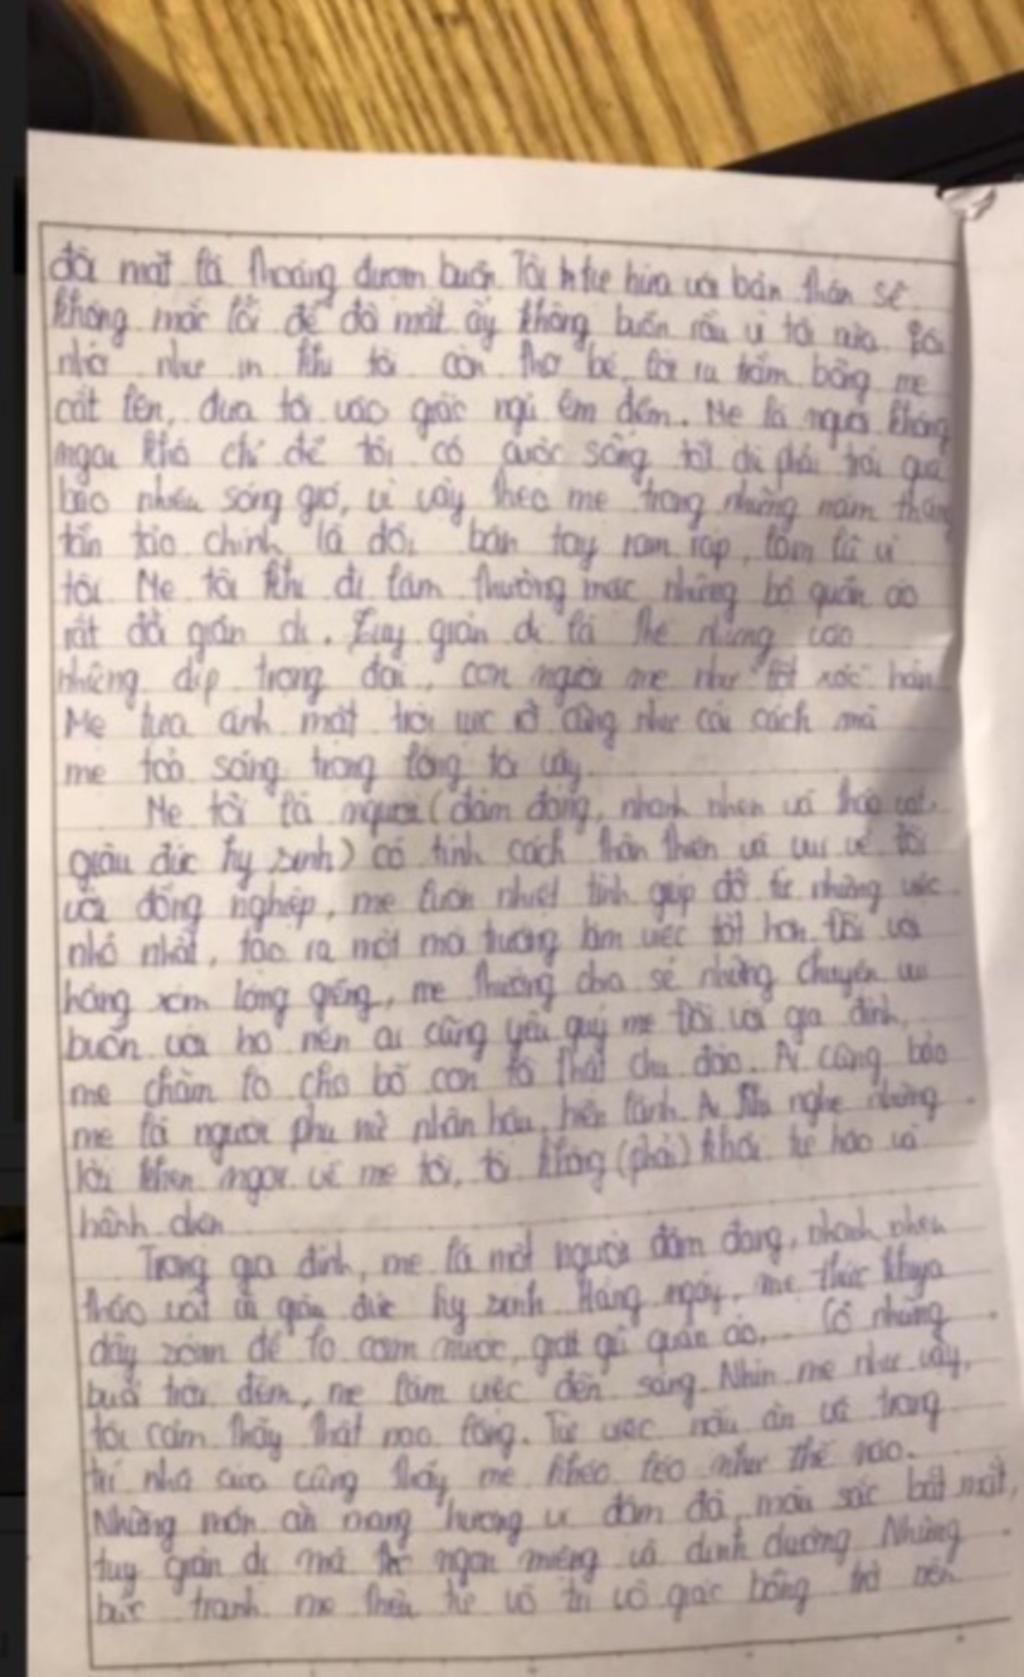 đôi mắt là thoáng đượm buồn Tôi tự hứa với bản thân sẽ
không mắc lỗi để đôi mắt ấy không buồn rầu vì tôi nữa Tôi
nhớ như in khi tôi còn thơ bé, lời ru trầm bổng mẹ
cất lên, đưa tôi vào giấc ngủ êm đềm. Mẹ là người không
ngại khó chỉ để tôi có cuộc sống tốt dù phải trải qua
bao nhiêu sóng gió, vì vậy theo mẹ trong những năm tháng
tần tảo chính là đôi bàn tay ram ráp, lấm là vì
tôi Mẹ tôi khi đi làm thường mặc những bộ quần áo
rất đỗi giản dị. Tuy giản dị là thế nhưng vào
những dịp trọng đại, con người mẹ như lột xác hẳn
Mẹ tựa ánh mặt trời rực rỡ cũng như cái cách mà
mẹ toả sáng trong lòng tôi vậy.
Mẹ tôi là người (đảm đang, nhanh nhẹn và tháo vát,
giàu đức hy sinh) có tính cách thân thiện và vui vẻ Đối
với đồng nghiệp, mẹ luôn nhiệt tình giúp đỡ từ những việc
nhỏ nhất, tạo ra một môi trường làm việc tốt hơn Đối với
hàng xóm láng giềng, mẹ thường chia sẻ những chuyện vui
buồn với họ nên ai cũng yêu quý mẹ Đối với gia đình,
mẹ chăm lo cho bố con tôi thật chu đáo. Ai cũng bảo
mẹ là người phụ nữ nhân hậu, hiền lành. nghe những
lời khen ngợi về mẹ tôi, tôi không (phải) khỏi tự hào và
hãnh diện
Trong gia đình, mẹ là một người đảm đang, nhanh nhẹn
tháo vát và giàu đức hy sinh Hàng ngày, mẹ thức khuya
dậy sớm để lo cơm nước, giặt giũ quần áo,... Có những
buổi trời đêm, mẹ làm việc đến sáng. Nhìn mẹ như vậy,
tôi cảm thấy thật nao lòng. Từ việc nấu ăn và trang
trí nhà cửa cũng thấy mẹ khéo léo như thế nào.
Những món ăn mang hương vị đậm đà, màu sắc bắt mắt,
tuy giản dị mà ngon miệng và dinh dưỡng Những
bức tranh mẹ thêu từ vô tri vô giác bỗng trở nên